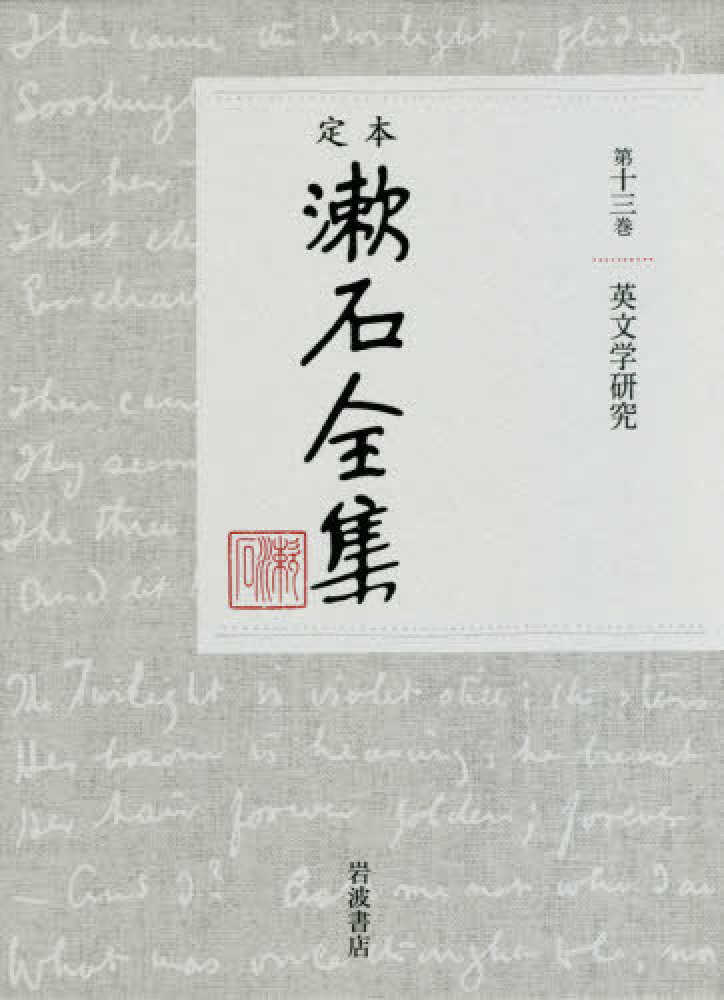 Then came the Twilight, gliding
In her
That
Then came
They
The three
And let
The Twilight is violet still; the stars
Her bosom is heaving; her breast
Her hair forever golden; forever
But me not who I am
What was once
第十三巻
英文学研究
定本
漱石全集
漱石
岩波書店